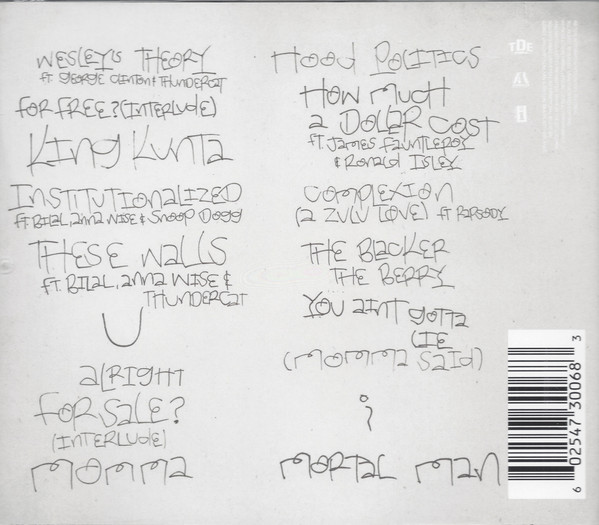 WESLEY'S THEORY
FT. GEORGE CLINTON & THUNDERCAT
FOR FREE? (INTERLUDE)
KING KUNTA
INSTITUTIONALIZED
FT. BILAL, ANNA WISE & SNOOP DOGG
THESE WALLS
FT. BILAL, ANNA WISE &
THUNDERCAT
U
ALRIGHT
FOR SALE?
(INTERLUDE)
MOMMA
HOOD POLITICS
HOW MUCH
A DOLLAR COST
FT. JAMES FAUNTLEROY
& RONALD ISLEY
COMPLEXION
(A ZULU LOVE) FT RAPSODY
THE BLACKER
THE BERRY
YOU AINT GOTTA
LIE
(MOMMA SAID)
i
MORTAL MAN
TDE
6 02547 30068 3